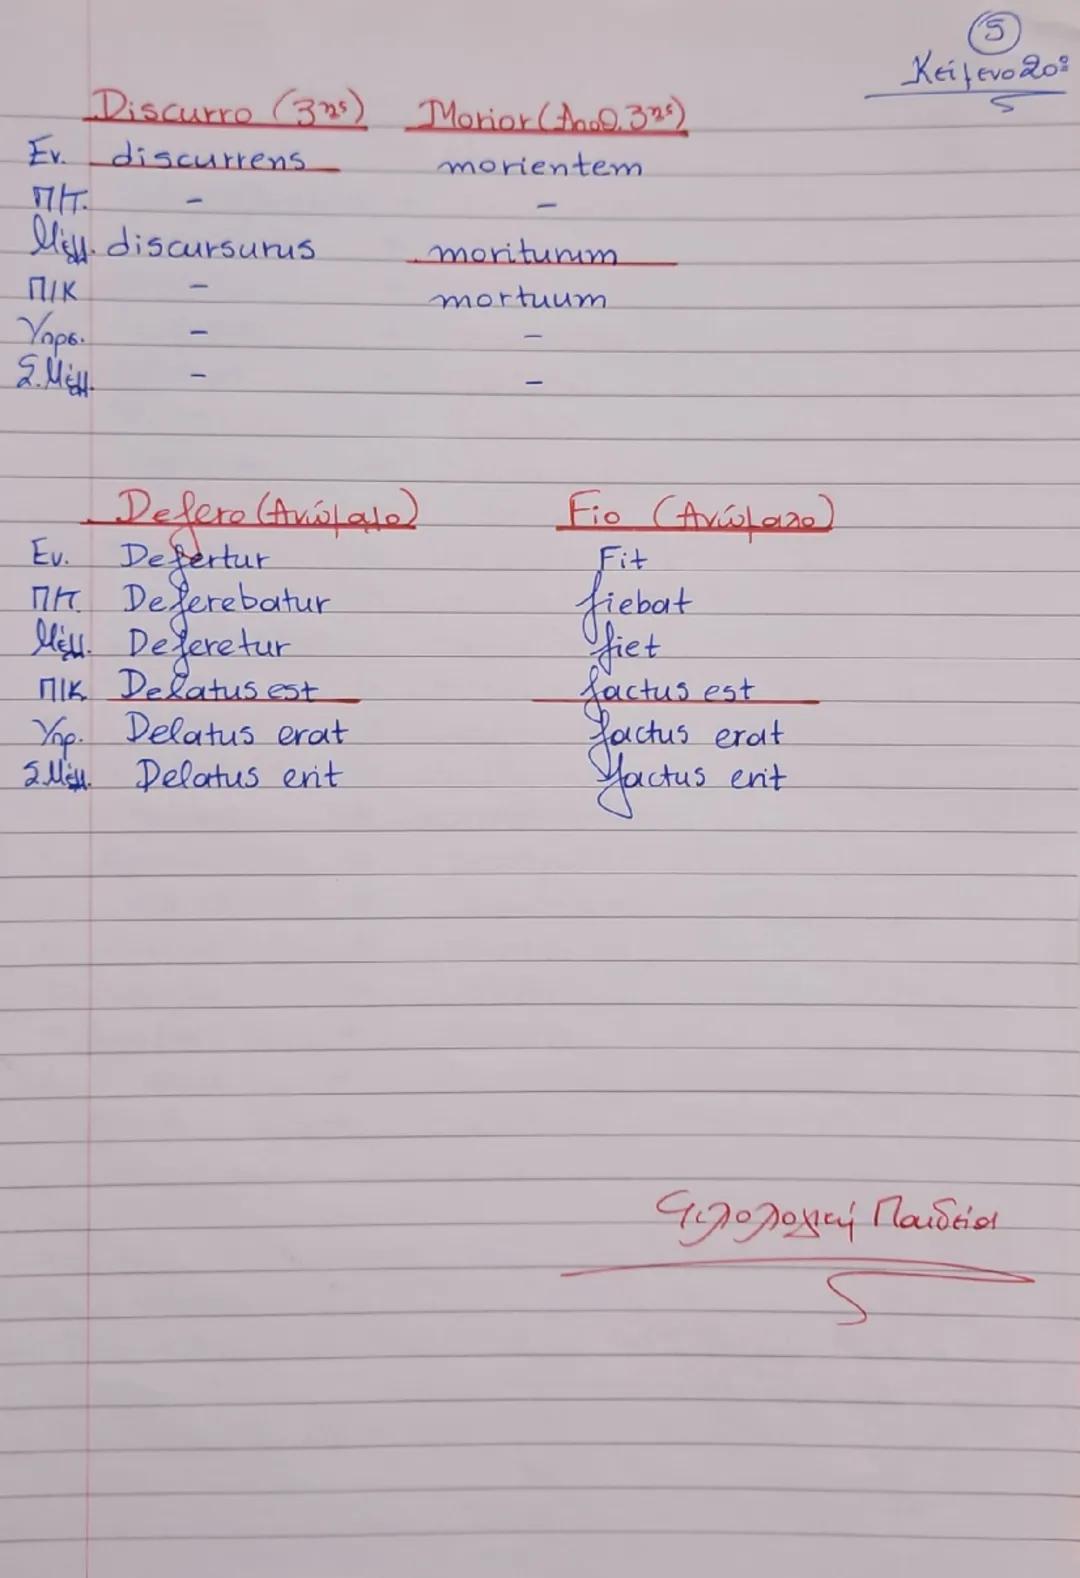 5
Κείμενο 20º
Discurro (3ης) Morior (Αποθ. 3ης)
Εν. discurrens morientem
Π/Τ. - -
Μέλλ. discursurus moriturum
Π/Κ - mortuum
Υπρσ. - -
Σ.Μέλλ. - -
Defero (Ανώμαλο) Fio (Ανώμαλο)
Εν. Defertur Fit
Π/Τ. Deferebatur fiebat
Μέλλ. Deferetur fiet
Π/Κ Delatus est factus est
Υπρ. Delatus erat factus erat
Σ.Μέλλ. Delatus erit factus erit
Φιλολογική Παιδεία